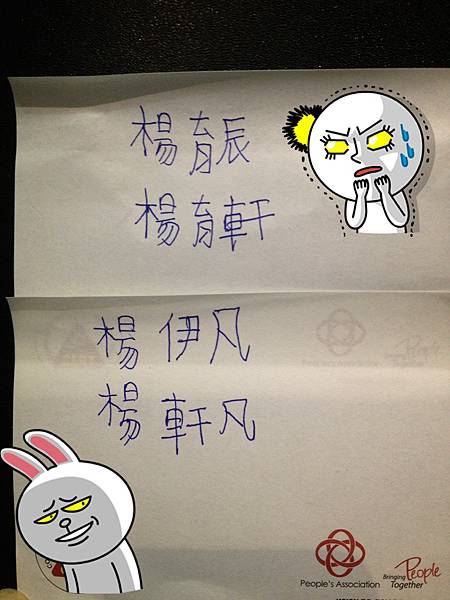 楊育辰
楊育軒
楊伊凡
楊軒凡
People's Association
Bringing People
Together